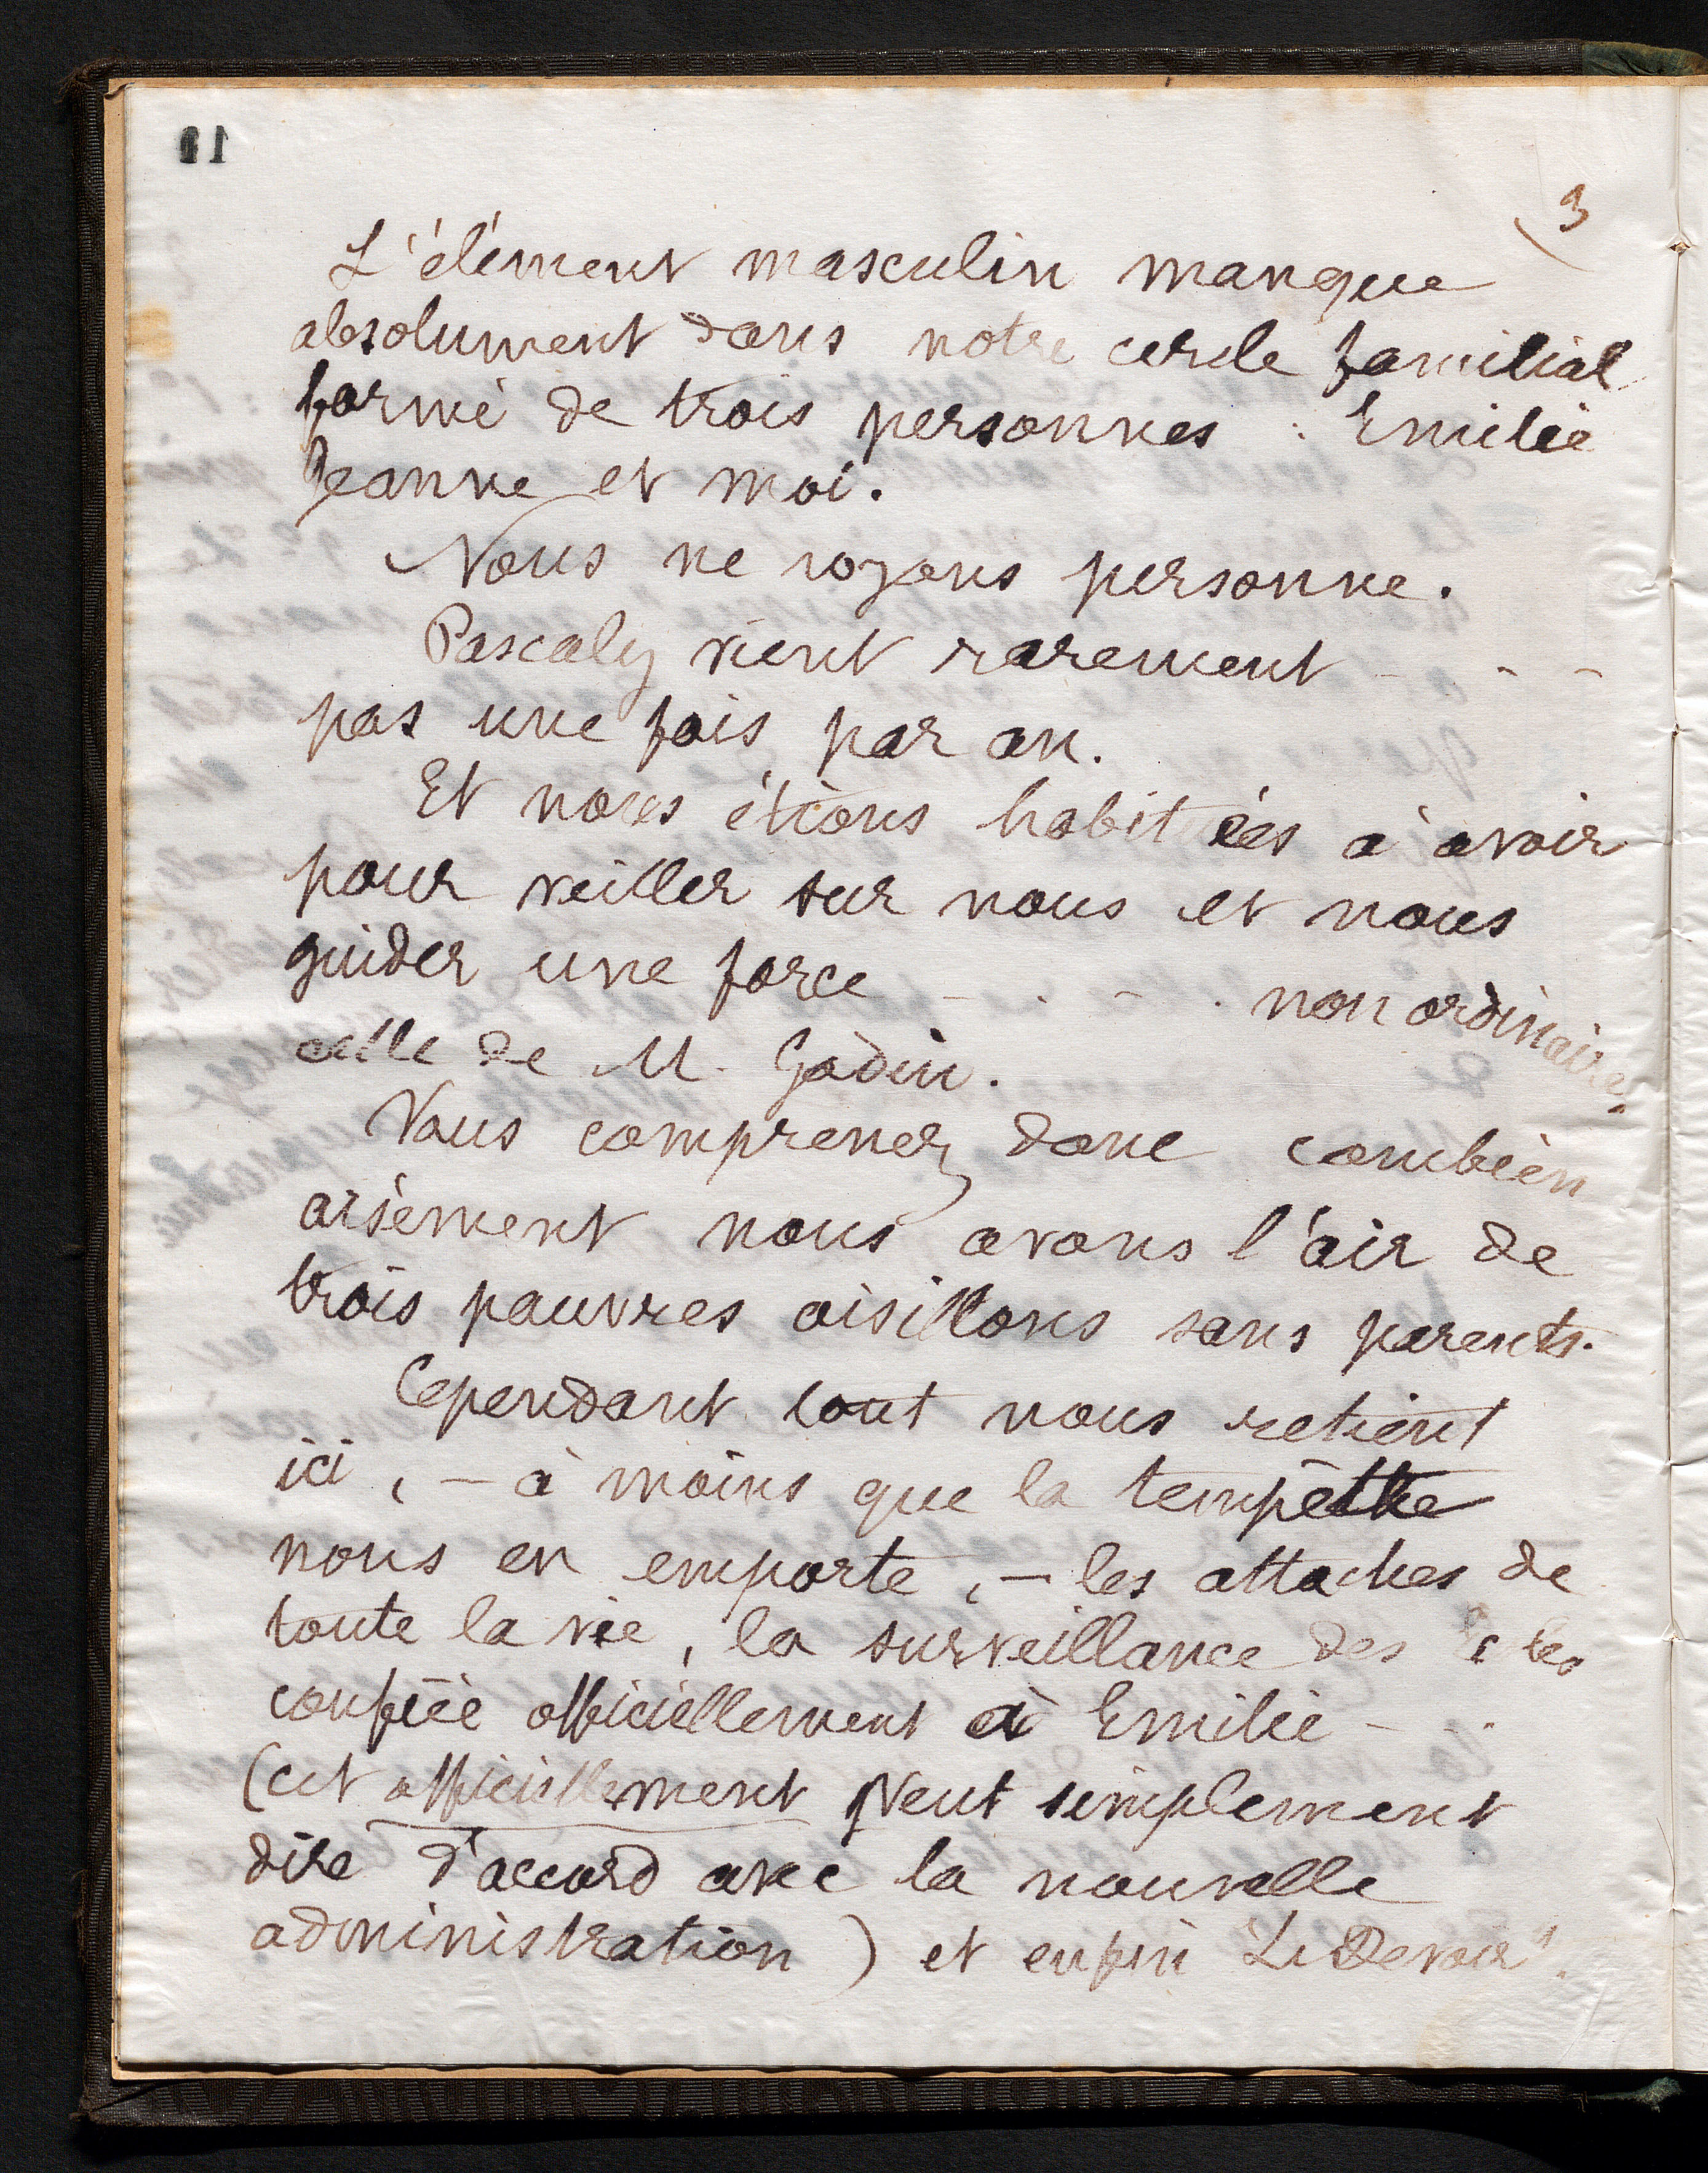 3
L'élément masculin manque
absolument dans notre cercle familial
formé de trois personnes : Emilie
Jeanne et moi.
Nous ne voyons personne.
Pascaly vient rarement - - -
pas une fois par an.
Et nous étions habituées à avoir
pour veiller sur nous et nous
guider une force - . - . non ordinaire,
celle de M. Godin.
Vous comprenez donc combien
aisément nous avons l'air de
trois pauvres oisillons sans parents.
Cependant tout nous retient
ici, - à moins que la tempête
nous en emporte, - les attaches de
toute la vie, la surveillance des
confiée officiellement à Emilie - . .
(cet officiellement veut simplement
dire d'accord avec la nouvelle
administration) et enfin "Le Devoir".